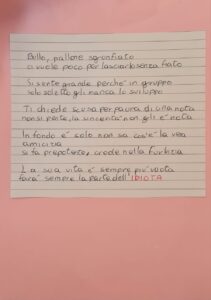 Bullo, pallone sgonfiato
ci vuole poco per lasciarlo senza fiato
Si sente grande perchè in gruppo
solo soletto gli manca lo sviluppo
Ti chiede scusa per paura di una nota
non si pente, la sincerità non gli è nota
In fondo è solo non sa cos'è la vera
amicizia
si fa prepotente, crede nella furbizia
La sua vita è sempre più vuota
farà sempre la parte dell'IDIOTA